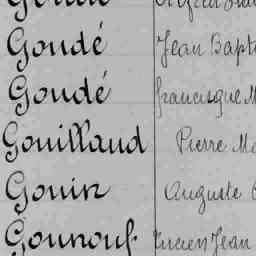 Goudé Jean Bapt
Goudé francisque M
Gouillaud Pierre Ma
Gouin Auguste
Gounouf Lucien Jean